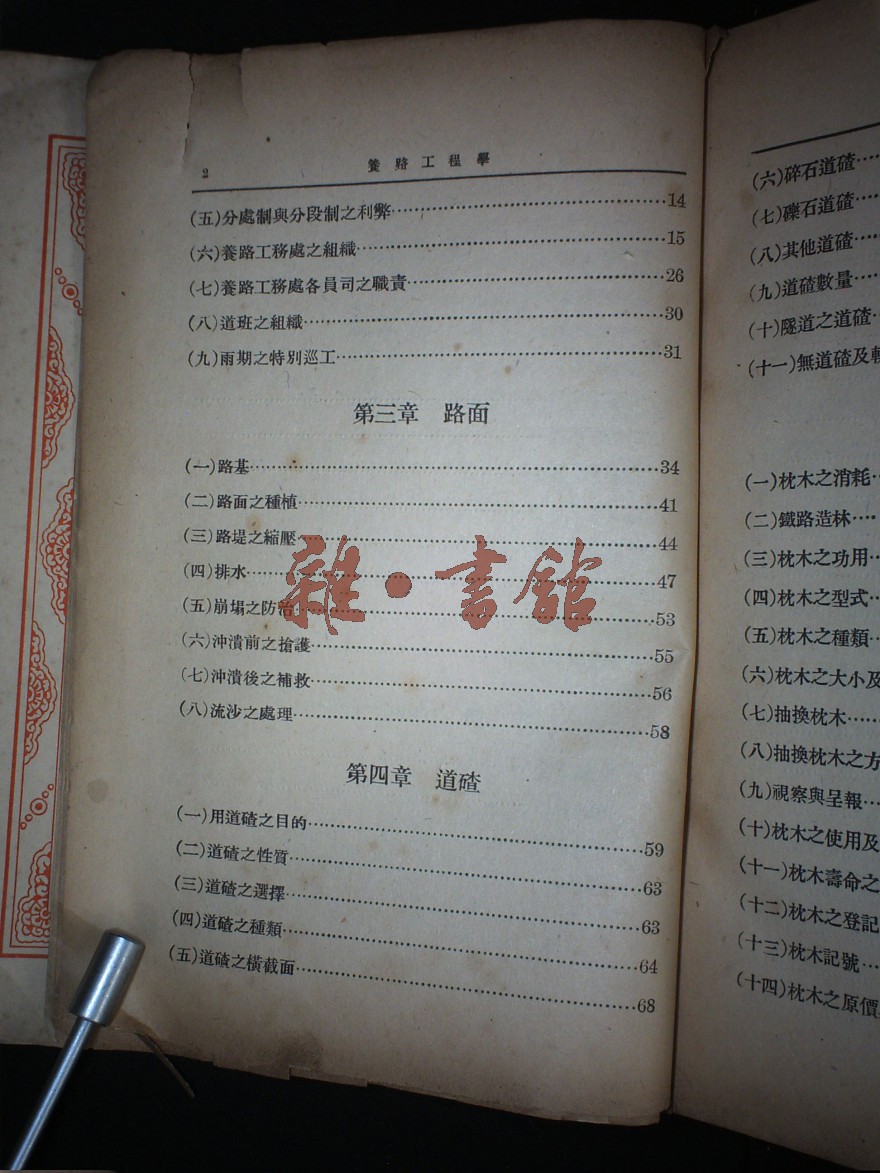 2
養路工程學
(五)分處制與分段制之利弊……14
(六)養路工務處之組織……15
(七)養路工務處各員司之職責……26
(八)道班之組織……30
(九)雨期之特別巡工……31
第三章 路面
(一)路基……34
(二)路面之種植……41
(三)路堤之縮壓……44
(四)排水……47
(五)崩塌之防治……53
(六)沖潰前之搶護……55
(七)沖潰後之補救……56
(八)流沙之處理……58
第四章 道碴
(一)用道碴之目的……59
(二)道碴之性質……63
(三)道碴之選擇……63
(四)道碴之種類……64
(五)道碴之橫截面……68
雜·書館
(六)碎石道碴……
(七)礫石道碴……
(八)其他道碴……
(九)道碴數量……
(十)隧道之道碴…
(十一)無道碴及
(一)枕木之消耗…
(二)鐵路造林……
(三)枕木之功用…
(四)枕木之型式…
(五)枕木之種類…
(六)枕木之大小及
(七)抽換枕木……
(八)抽換枕木之方
(九)視察與呈報…
(十)枕木之使用及
(十一)枕木壽命之
(十二)枕木之登記
(十三)枕木記號…
(十四)枕木之原價